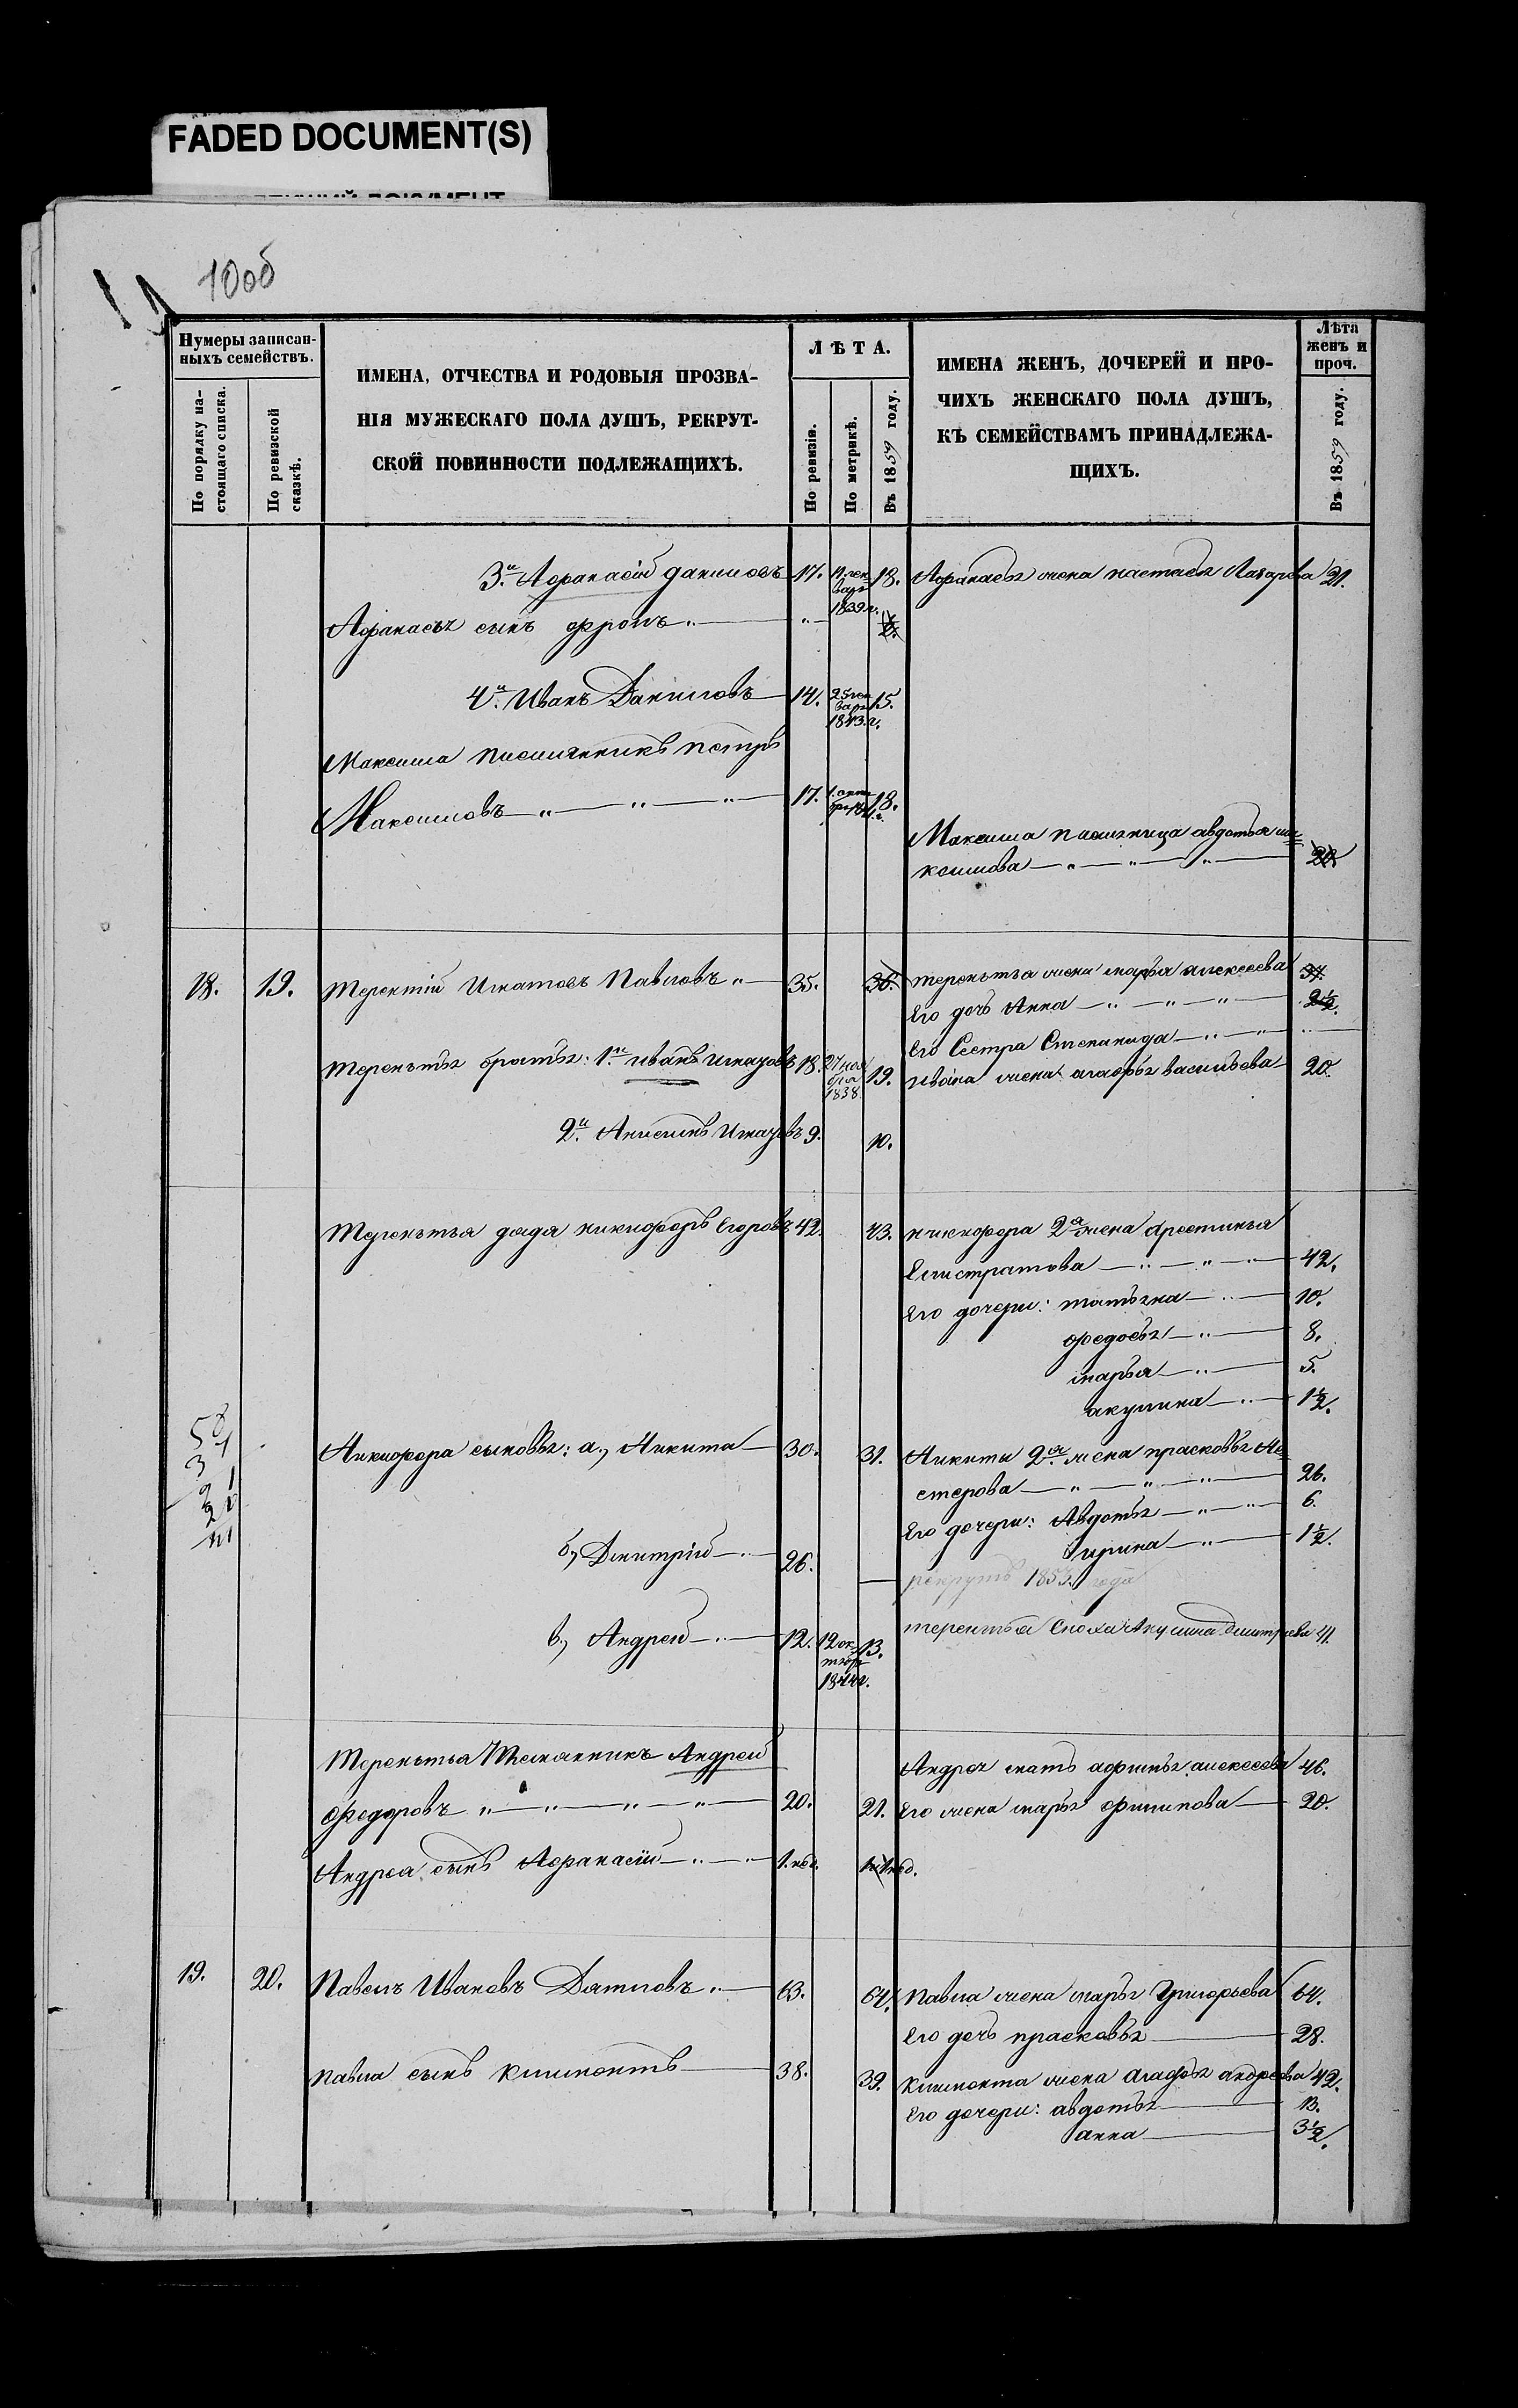 FADED DOCUMENT(S)
10об
Нумеры записан-
ныхъ семействъ.
По порядку на-
стоящаго списка.
По ревизской
сказкѣ.
ИМЕНА, ОТЧЕСТВА И РОДОВЫЯ ПРОЗВА-
НІЯ МУЖЕСКАГО ПОЛА ДУШЪ, РЕКРУТ-
СКОЙ ПОВИННОСТИ ПОДЛЕЖАЩИХЪ.
ЛѢТА.
По ревизіи.
По метрикѣ.
Въ 1859 году.
ИМЕНА ЖЕНЪ, ДОЧЕРЕЙ И ПРО-
ЧИХЪ ЖЕНСКАГО ПОЛА ДУШЪ,
КЪ СЕМЕЙСТВАМЪ ПРИНАДЛЕЖА-
ЩИХЪ.
Лѣта
женъ и
проч.
Въ 1859 году.
3.й Афанасій даниловъ 17. 18. Афанасья жена настасья Лазарева 21.
1839 г.
Афанасья сынъ фролъ
4.й Иванъ Даниловъ 14. 25 ген 15.
варя
1843 г.
Максима племянникъ петръ
Максимовъ 17. 18.
Максима племяница авдотья ма-
ксимова 20
18. 19. терентій Игнатовъ Павловъ 35. 36. терентья жена марья алексеева 37
Его дочь Анна 2½.
Его Сестра Степанида
терентья братья: 1.й иванъ игнатовъ 18. 27 ноя 19. ивана жена агафья васильева 20
бря
1838
2.й Анисимъ Игнатовъ 9. 10.
терентья дядя никифоръ Егоровъ 42. 43. никифора 2я жена фестинья
Елистратова 42.
Его дочери: татьяна 10.
федосья 8.
марья 5.
акулина 1½.
Никифора сыновья: а., Никита 30. 31. Никиты 2я жена прасковья Не-
стерова 26.
Его дочери: Авдотья 6.
ирина 1½.
б., Дмитрій 26. рекрутъ года
в., Андрей 12. 12 ок 13. терентья Сноха Акулина дмитрева 41.
тябр
1844 г.
Терентья Племянникъ Андрей
федоровъ 20. 21.
Андрея мать афимья алексеева 46.
Его жена марья филипова 20.
Андрея сынъ Афанасій 1. нед.
19. 20. Павелъ Ивановъ Дятловъ 63. 64. павла жена марья Григорьева 64.
Его дочь прасковья 28.
павла сынъ климонтъ 38. 39. климонта жена агафья андреева 42.
Его дочери: авдотья 13.
анна 3½.